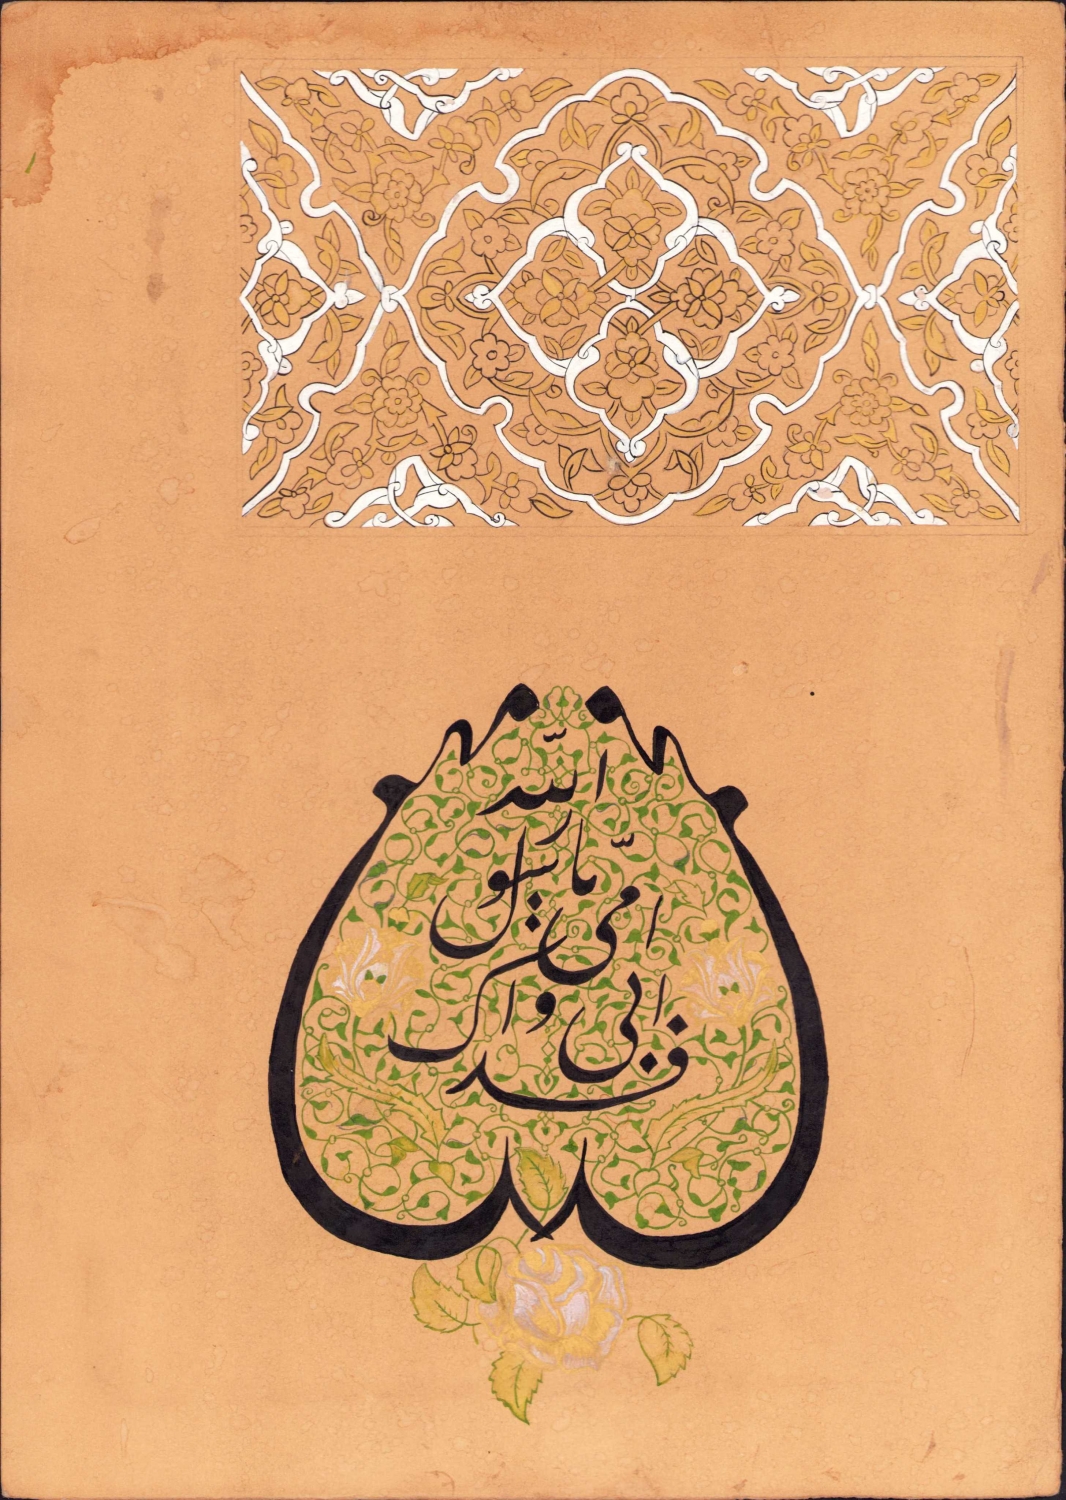 فداک ابی و امّی یا رسول اللّه